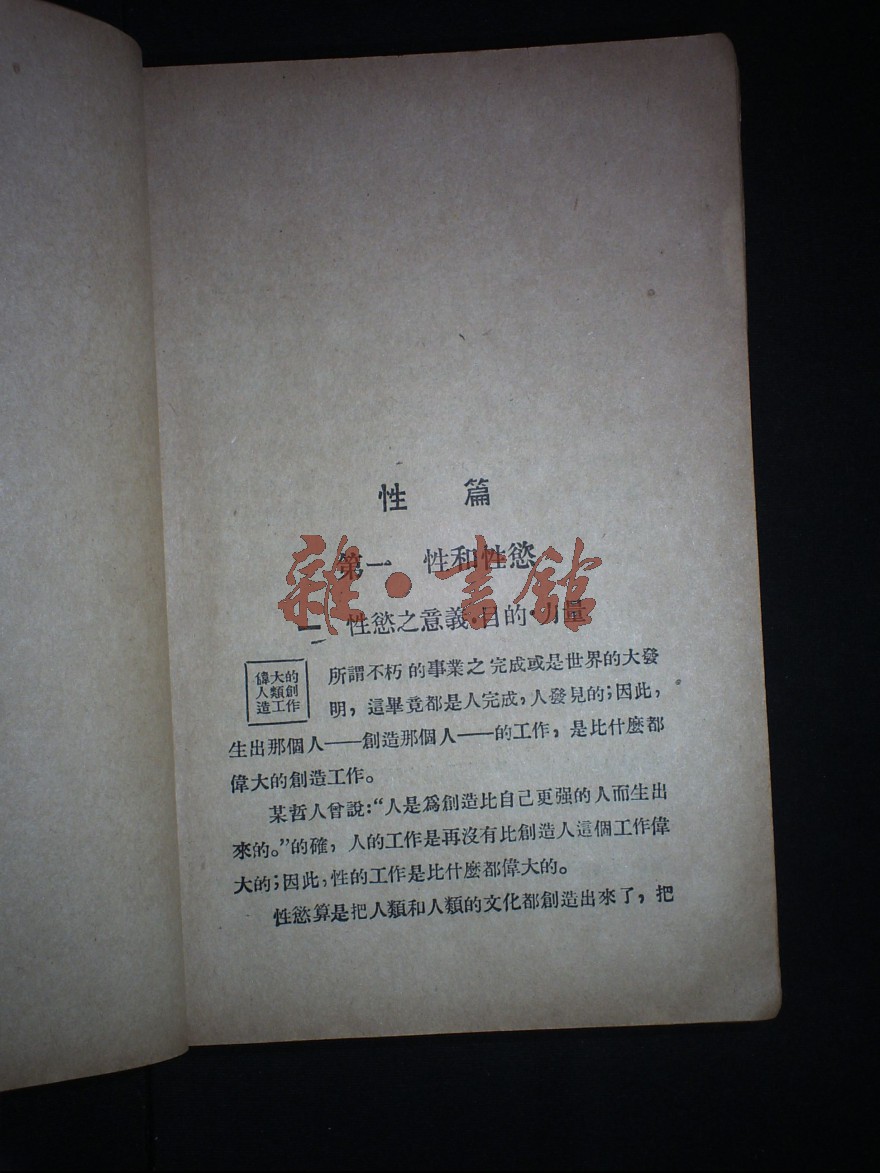 性篇
第一 性和性慾
一 性慾之意義·目的·力量
雜·書館
偉大的
人類創
造工作
所謂不朽的事業之完成或是世界的大發
明，這畢竟都是人完成，人發見的；因此，
生出那個人——創造那個人——的工作，是比什麼都
偉大的創造工作。
某哲人曾說：“人是爲創造比自己更强的人而生出
來的。”的確，人的工作是再沒有比創造人這個工作偉
大的；因此，性的工作是比什麼都偉大的。
性慾算是把人類和人類的文化都創造出來了，把